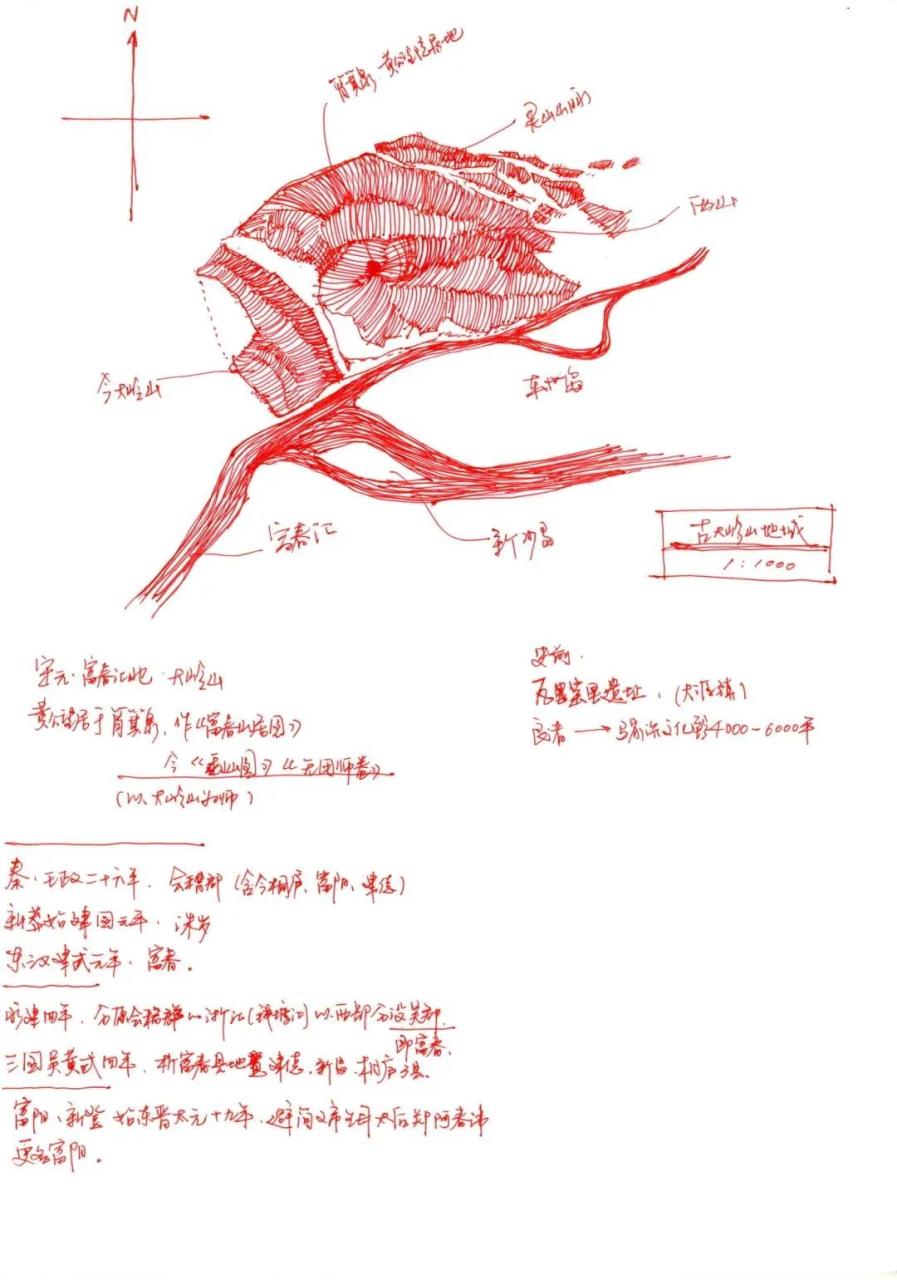 N
筲箕泉 黄公望隐居地
灵山山脉
今大岭山
东洲岛
富春江
新沙岛
古大岭山地域
1:1000
宋元·富春江地·大岭山
黄公望居于筲箕泉,作《富春山居图》
今《剩山图》《无用师卷》
(以大岭山为师)
史前·
瓦里窑里遗址,
良渚 → 马家浜文化距4000-6000年
秦·王政二十六年,会稽郡(含今桐庐、富阳、建德)
新莽始建国元年,诛岁
东汉建武元年,富春。
永建四年,分原会稽郡以浙江(钱塘江)以西部分设吴郡,
即富春,
三国吴黄武四年,析富春县地置建德、新昌、桐庐3县.
富阳、新登 始东晋太元十九年,避简文帝生母太后郑阿春讳
更名富阳。